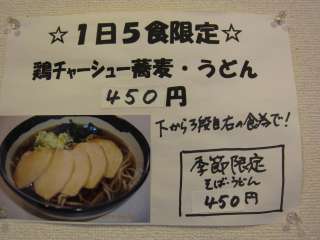 ☆１日５食限定☆
鶏チャーシュー蕎麦・うどん
４５０円
下から３段目右の食券で！
季節限定
そば・うどん
450円